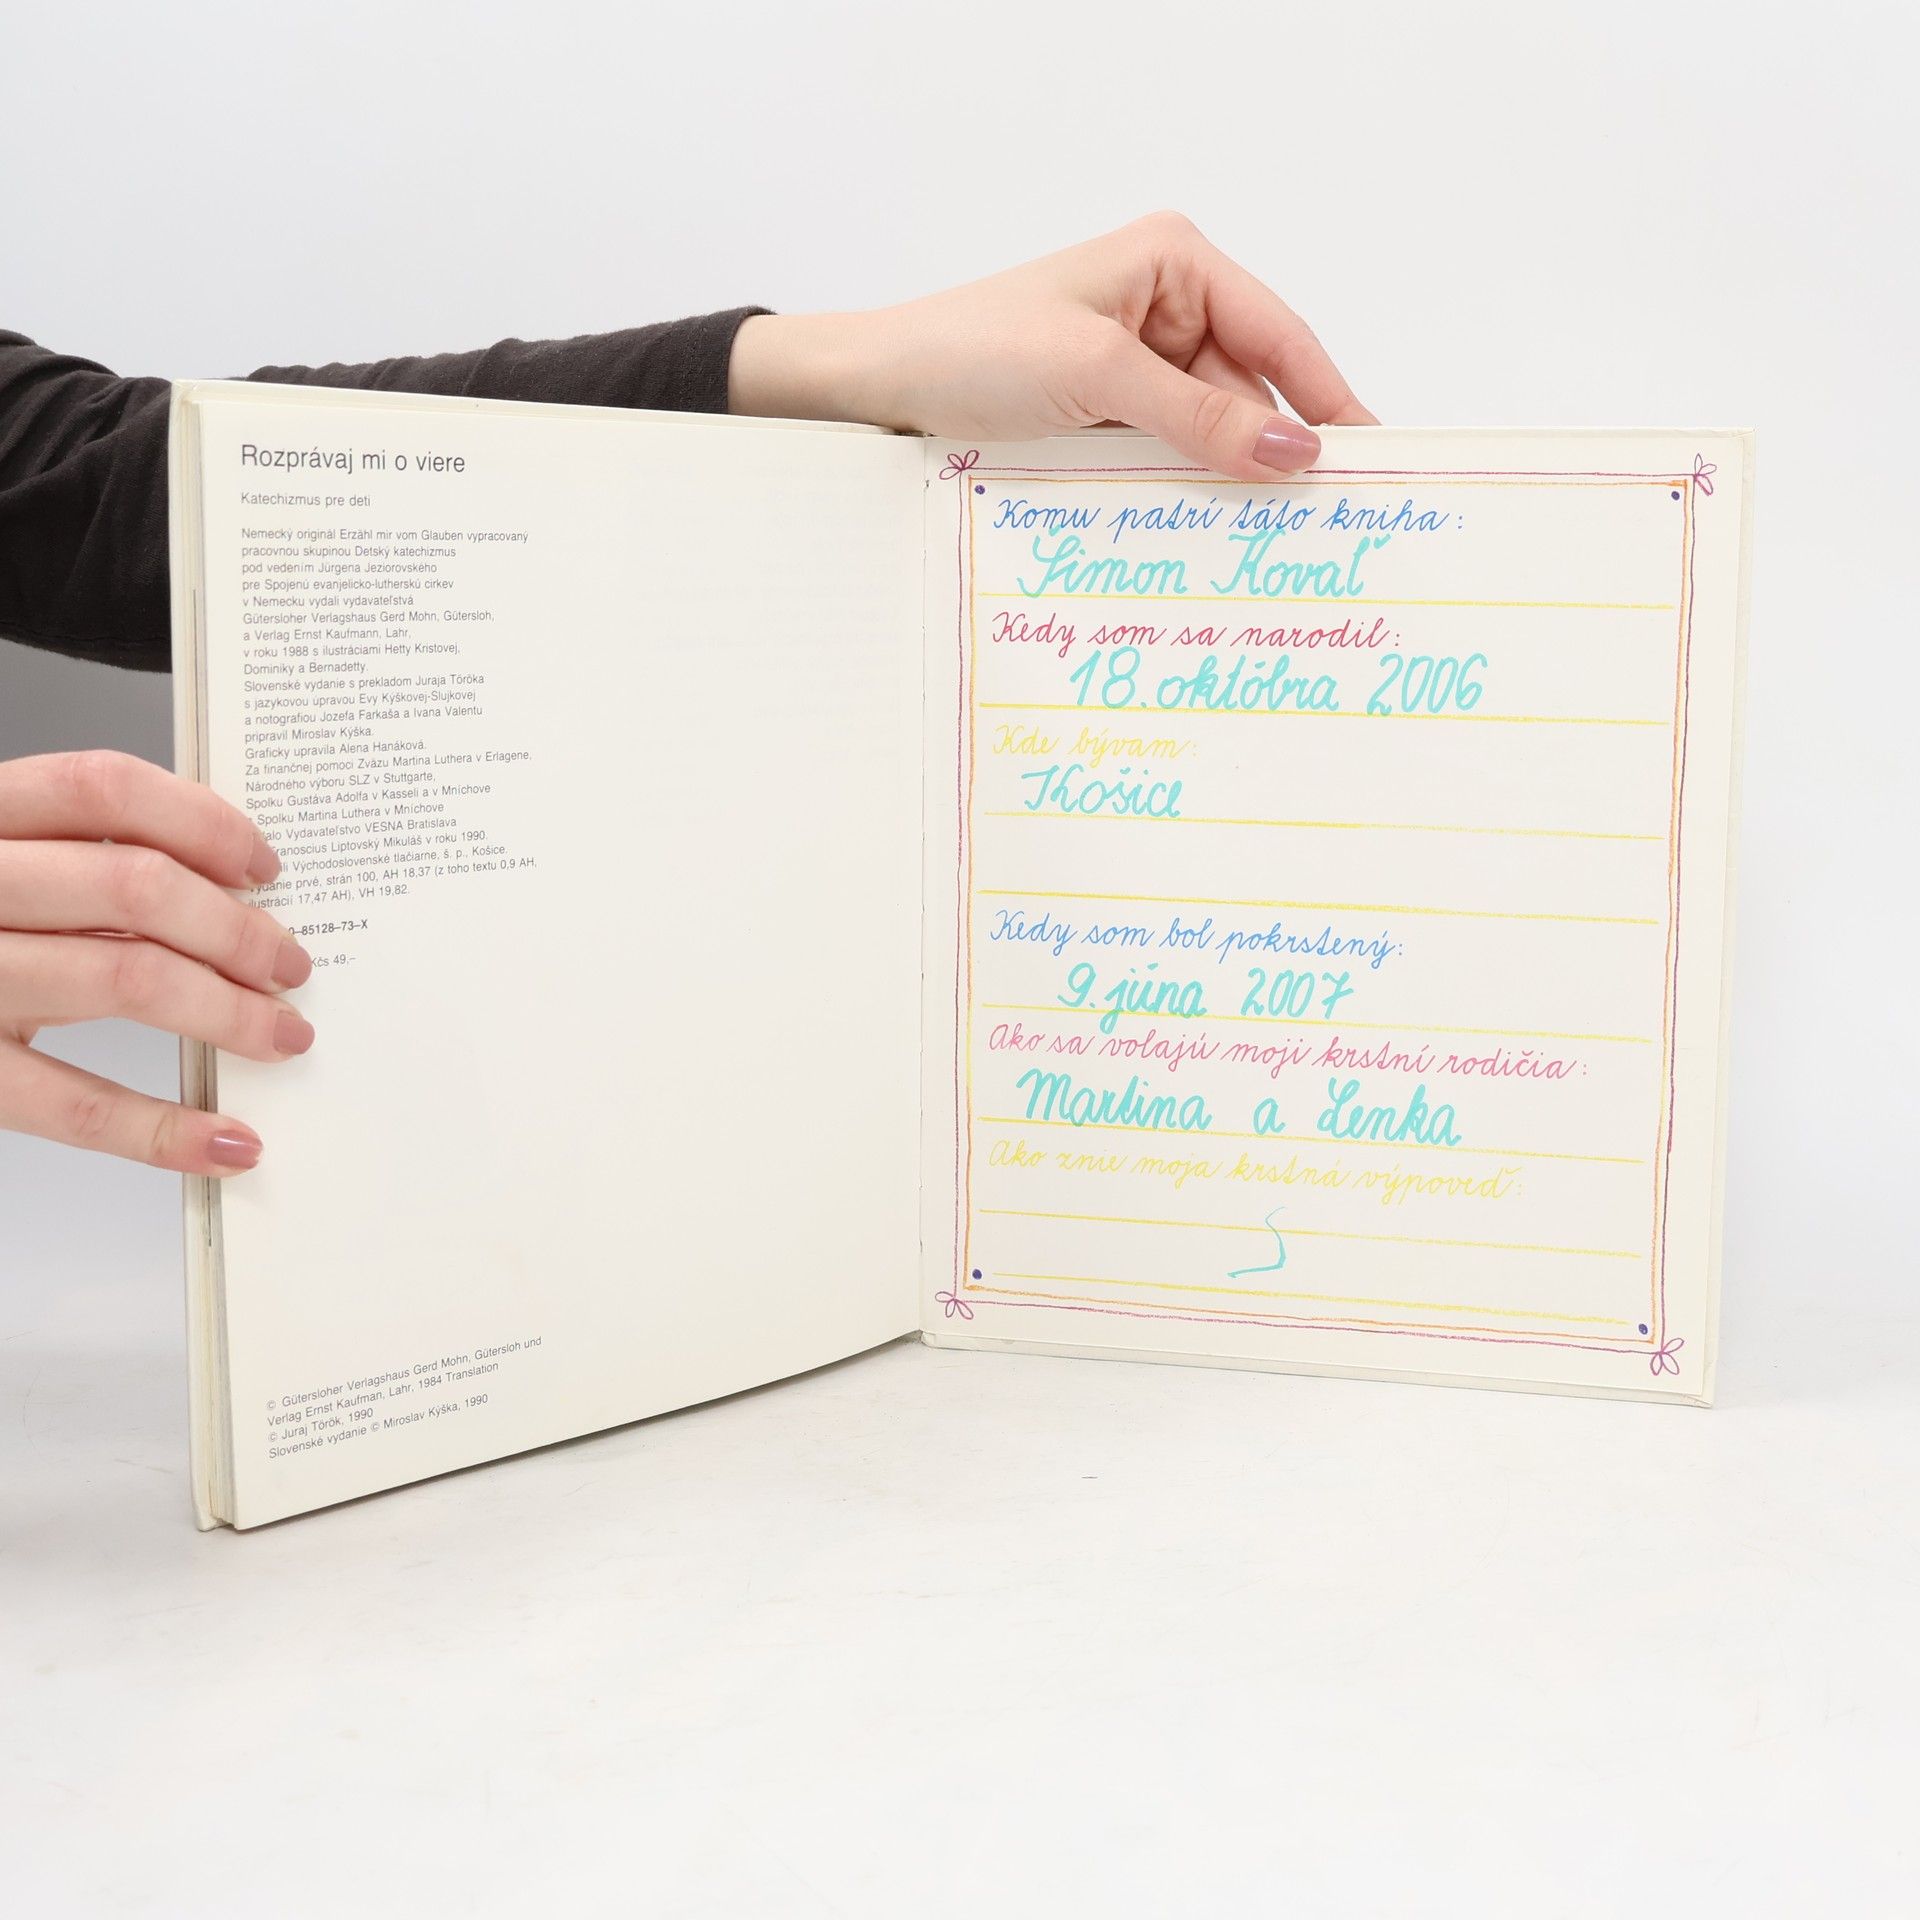 Rozprávaj mi o viere
Katechizmus pre deti
Nemecký originál Erzähl mir vom Glauben vypracovaný
pracovnou skupinou Detský katechizmus
pod vedením Jürgena Jeziorovského
pre Spojenú evanjelicko-lutherskú cirkev
v Nemecku vydali vydavateľstvá
Gütersloher Verlagshaus Gerd Mohn, Gütersloh,
a Verlag Ernst Kaufmann, Lahr,
v roku 1988 s ilustráciami Hetty Kristovej,
Dominiky a Bernadetty.
Slovenské vydanie s prekladom Juraja Töröka
s jazykovou úpravou Evy Kýškovej-Slujkovej
a notografiou Jozefa Farkaša a Ivana Valentu
pripravil Miroslav Kýška.
Graficky upravila Alena Hanáková.
Za finančnej pomoci Zväzu Martina Luthera v Erlagene,
Národného výboru SLZ v Stuttgarte,
Spolku Gustáva Adolfa v Kasseli a v Mníchove
Spolku Martina Luthera v Mníchove
Vydavateľstvo VESNA Bratislava
Liptovský Mikuláš v roku 1990.
Východoslovenské tlačiarne, š. p., Košice.
prvé, strán 100, AH 18,37 (z toho textu 0,9 AH,
ilustrácií 17,47 AH), VH 19,82.
–85128–73–X
Kčs 49.–
© Gütersloher Verlagshaus Gerd Mohn, Gütersloh und
Verlag Ernst Kaufman, Lahr, 1984 Translation
© Juraj Török, 1990
Slovenské vydanie © Miroslav Kýška, 1990
Komu patrí táto kniha:
Šimon Kovaľ
Kedy som sa narodil:
18. októbra 2006
Kde bývam:
Košice
Kedy som bol pokrstený:
9. júna 2007
Ako sa volajú moji krstní rodičia:
Martina a Lenka
Ako znie moja krstná výpoveď: